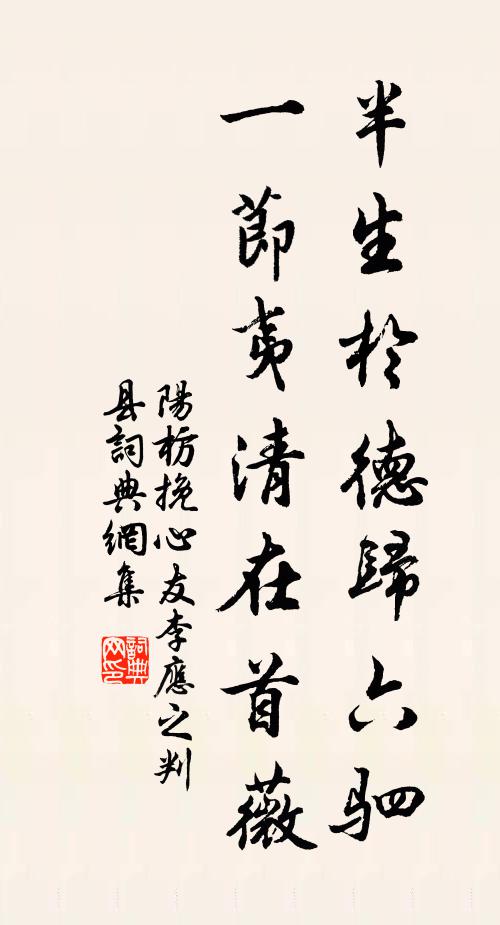 半生於德歸六駟
一節夷清在首薇
陽枋挽心友李應之判
县詞典網集
詞典网印